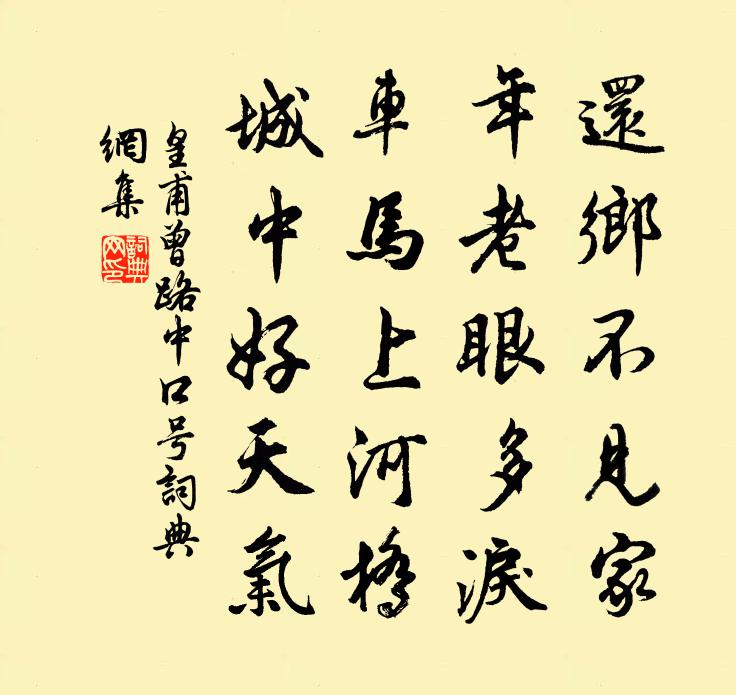 還鄉不見家
年老眼多淚
車馬上河橋
城中好天氣
皇甫曾路中口号詞典
網集
詞典
网印